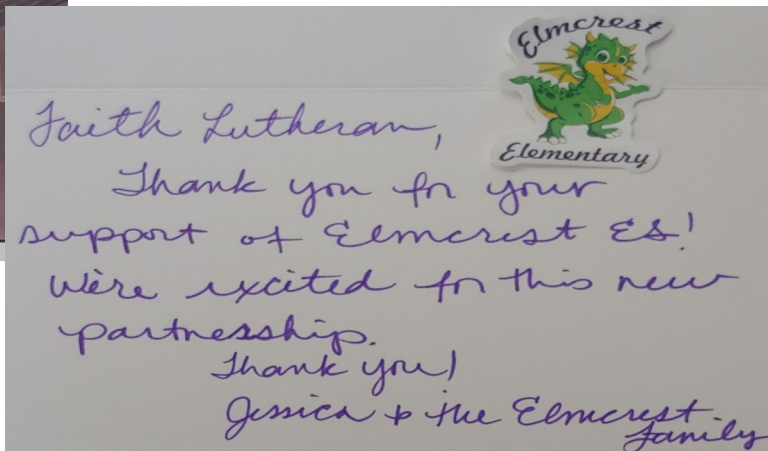 Elmcrest
Elementary
Faith Lutheran,
Thank you for your
support of Elmcrest ES!
We're excited for this new
partnership.
Thank you!
Jessica & the Elmcrest
family